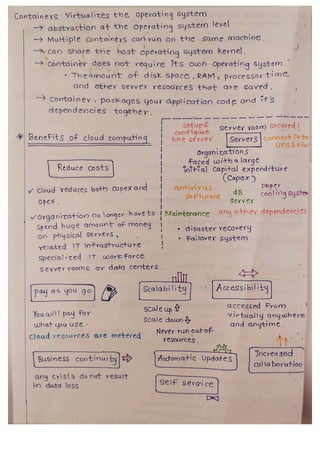 Containers Virtualizes the operating system
→ abstraction at the operating system level
→ Multiple Containers can run on the same machine
→ can share the host operating system kernel.
→ Container does not require its own operating system.
• The amount of disk space, RAM, processor time
and other server resources that are saved.
→ Container, packages your application code and it's
dependencies togther.
* Benefits of cloud computing
Reduce costs
✓ cloud reduces both capex and
opex.
✓ organization no longer have to
spend huge amount of money
on physical servers,
related IT infrastructure
specialized IT workforce
server rooms or data centers.
Setup &
configure
the server
Server room secured!
Servers
connect it to
UPS &
organizations
faced with a large
initial capital expenditure
(Capex)
antivirus
software
dB
server
cooling system
Maintenance any other dependencies
• disaster recovery
• failover system
pay as you go
You will pay for
what you use.
cloud resources are metered
Scalability
scale up ⇧
scale down ⇩
Never run out of
resources.
Accessibility
accessed from
virtually anywhere
and anytime.
Business continuity ⇨
any crisis do not result
in data loss
Automatic Updates
Self service
Increased
collaboration